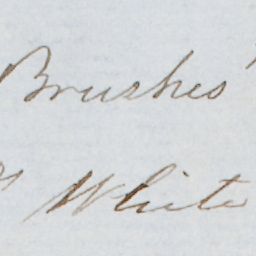 Brushes
White